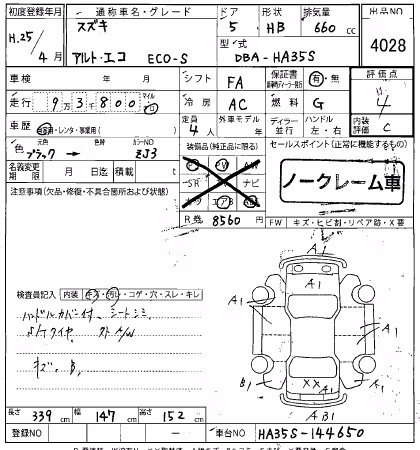 初度登録年月
通称車名・グレード
ドア
形状
排気量
出品NO
スズキ
5
HB
660 cc
H.25 / 4月
アルト・エコ ECO-S
型式
DBA-HA35S
4028
車検 年 月
シフト
FA
保証書
有・無
評価点
走行
93800
マイル
冷房
AC
燃料
G
4
車歴
・レンタ・事業用( )
定員
4人
外車モデル
年
ディーラー
並行
ハンドル
左・右
内装
評価
C
色
元色
ブラック →
色替
カラーNO
ZJ3
装備品(純正品に限る)
セールスポイント(正常に機能するもの)
名義変更
期限
月 日迄
積載
t
SR
ナビ
エアB
ノークレーム車
注意事項(欠品・修復・不具合箇所および状態)
R券 8560円
FW
キズ・ヒビ割・リペア跡・X要
A1
A1
検査員記入
内装
キズ・汚レ・コゲ・穴・スレ・キレ
A1
A1
ハンドルカバー付 シートシミ
キズ、B、
B1
XX
A1
A1
AB1
長さ 339 cm
幅 147 cm
高さ 152 cm
登録NO
車台NO
HA35S-144650